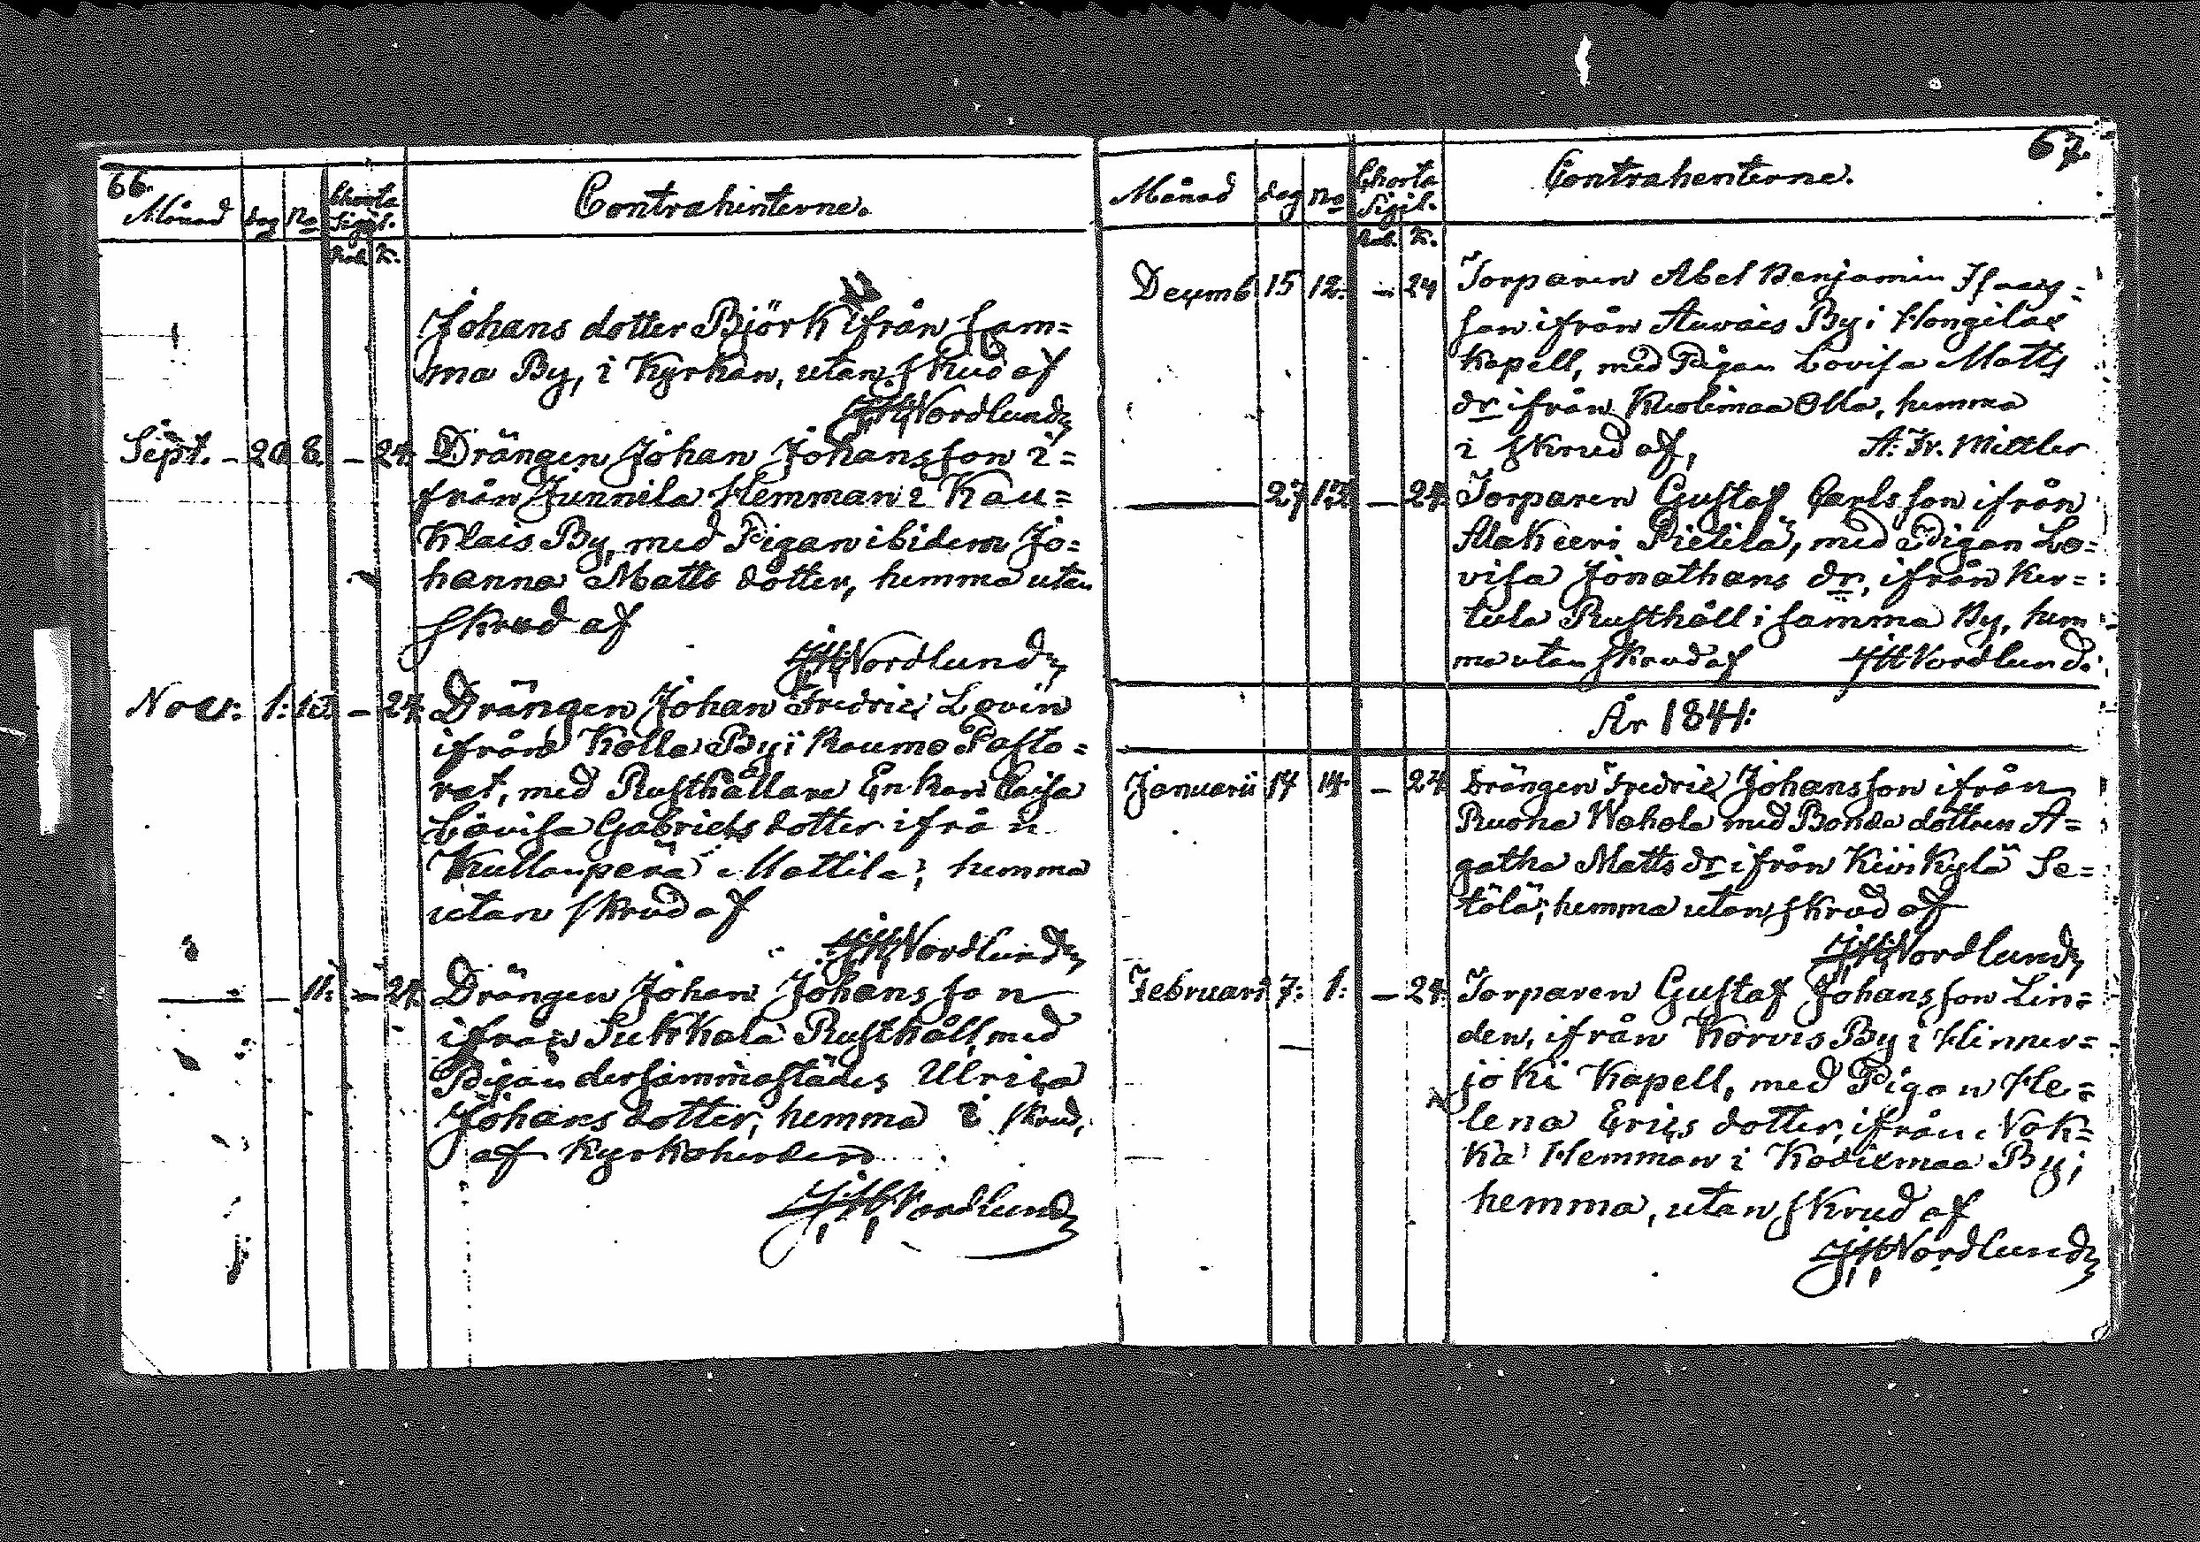 66.
Månad dag No Charta Sigil. Contrahenterne.
Rub. K.
Johans dotter Björk ifrån sam=
ma By, i Kyrkan, utan skrud af
JHNordlund
Sept. - 20 8. - 24. Drängen Johan Johansson i=
från Junnila Hemman i Kau=
klais By, med Pigan ibidem Jo=
hanna Matts dotter, hemma utan
skrud af
JHNordlund
Novr: 1: 10. - 24. Drängen Johan Fredric Lovin
ifrån Kolla By i Raumo Pasto=
rat, med Rusthållare Enkan Caisa
Lovisa Gabriels dotter ifrån
Kullanperä Mattila; hemma
utan skrud af
JHNordlund
— - 11. - 24. Drängen Johan Johansson
ifrån Sukkala Rusthåll, med
Pigan dersammastädes Ulrica
Johans dotter, hemma i skrud,
af Kyrkoherden
JHNordlund
67.
Månad dag No Charta Sigil. Contrahenterne.
Rub. K.
Decemb 15 12: - 24 Torparen Abel Benjamin Isaac=
son ifrån Auvais By i Hongilax
Kapell, med Pigan Lovisa Matts
dr ifrån Kuolimaa Olla, hemma
i skrud af, A. Fr. Mittler
— 27 - 24. Torparen Gustaf Carlsson ifrån
Alakeeri Pietilä, med Pigan Lo=
visa Jonathans dr, ifrån Ker=
tula Rusthåll i samma By, hem
ma utan skrud af JHNordlund.
År 1841:
Januarii 14 14. - 24 Drängen Fredric Johansson ifrån
Ruona Wahola med Bonde dottren A=
gatha Matts dr ifrån Kivikylä Se=
tälä; hemma utan skrud af
JHNordlund
Februari 7: 1: - 24. Torparen Gustaf Johansson Lin=
den, ifrån Korvis By i Hinner=
joki Kapell, med Pigan He=
lena Erics dotter, ifrån Nok=
ka Hemman i Kodixmaa By;
hemma, utan skrud af
JHNordlund